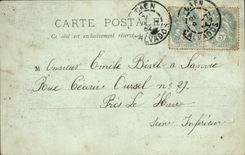 CARTE POSTALE
Ce côté est exclusivement réservé
CAEN
CAEN
CALVADOS
Monsieur Emile Binel à Sanvic
Rue Césaire Oursel n° 27
Près Le Havre
Seine Inférieure